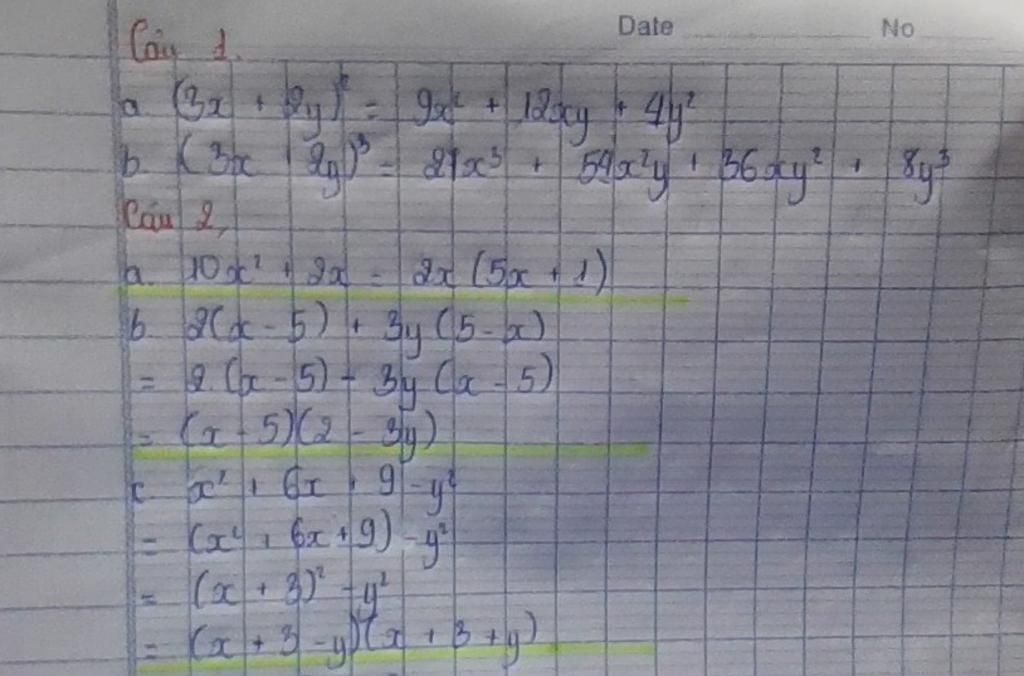 Date No
Câu 1.
a. (3x + 2y)² = 9x² + 12xy + 4y²
b. (3x + 2y)³ = 27x³ + 54x²y + 36xy² + 8y³
Câu 2,
a. 10x² + 2x = 2x (5x + 1)
b. 2(x - 5) + 3y (5 - x)
= 2.(x - 5) - 3y (x - 5)
= (x - 5)(2 - 3y)
c. x² + 6x + 9 - y²
= (x² + 6x + 9) - y²
= (x + 3)² - y²
= (x + 3 - y)(x + 3 + y)